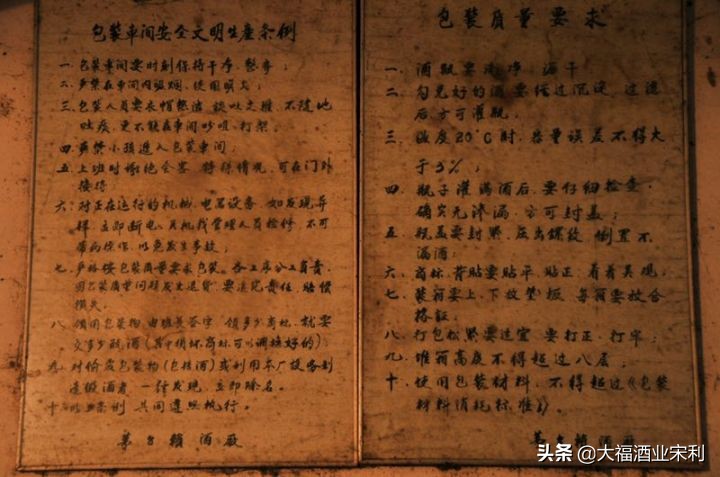 包装车间安全文明生产条例
一、包装车间要时刻保持干净、整齐；
二、严禁在车间内吸烟、使用明火；
三、包装人员要衣帽整洁、谈吐文雅、不随地
吐痰、更不能在车间吵咀、打架；
四、严禁小孩进入包装车间；
五、上班时谢绝会客、特殊情况、可在门外
接待
六、对正在运行的机械、电器设备、如发现异
样、立即断电、及时找管理人员检修、不可
带病操作、以免发生事故；
七、严格按包装质量要求包装。各工序分工负责，
因包装质量问题发生退货、要追究责任、赔偿
损失。
八、领用包装物、由班长签字、领多少商标、就要
交多少瓶酒（其中损坏商标可以调换好的）
九、对偷盗包装物（包括酒）或利用本厂设备制
造假酒者、一经发现、立即除名。
十、以上条例共同遵照执行。
茅台赖酒厂
包装质量要求
一、酒瓶要洗净、滤干
二、勾兑好的酒要经过沉淀、过滤
后方可灌瓶；
三、温度20℃时、容量误差不得大
于3%；
四、瓶子灌满酒后、要仔细检查、
确实无渗漏、方可封盖；
五、瓶盖要封紧、压出螺纹、倒置不
漏酒；
六、商标、背贴要贴平、贴正、看着美观。
七、装箱要上、下放垫板、每箱要放合
格证。
八、打包松紧要适宜、要打正、打牢；
九、堆箱高度不得超过八层；
十、使用包装材料、不得超过《包装
材料消耗标准》。
茅台赖酒厂
头条 @大福酒业宋利